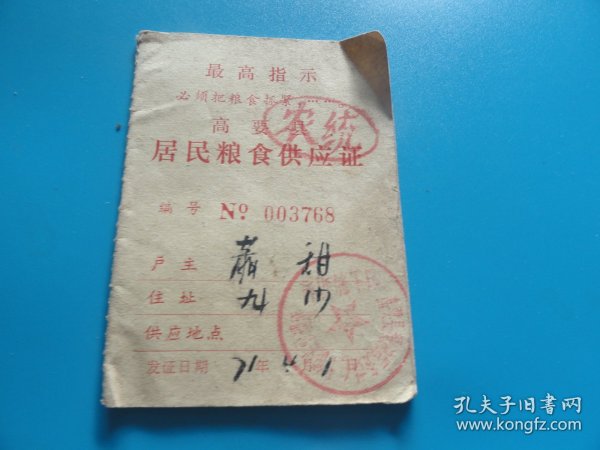 最高指示
必须把粮食抓紧……
高要县
农统
居民粮食供应证
编号 Nº 003768
户主 甜
住址 九
供应地点
发证日期 71年 月1日
孔夫子旧书网
www.kongfz.com